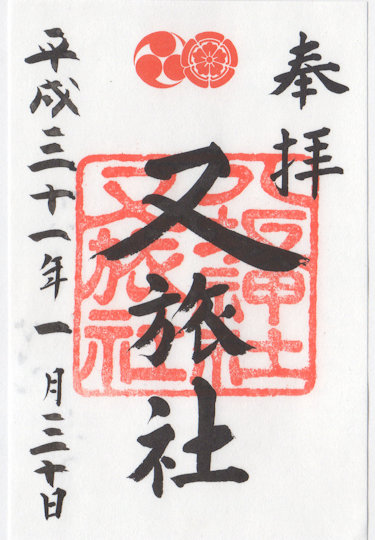 奉拝
八坂神社
又旅社
又旅社
平成三十一年一月三十日